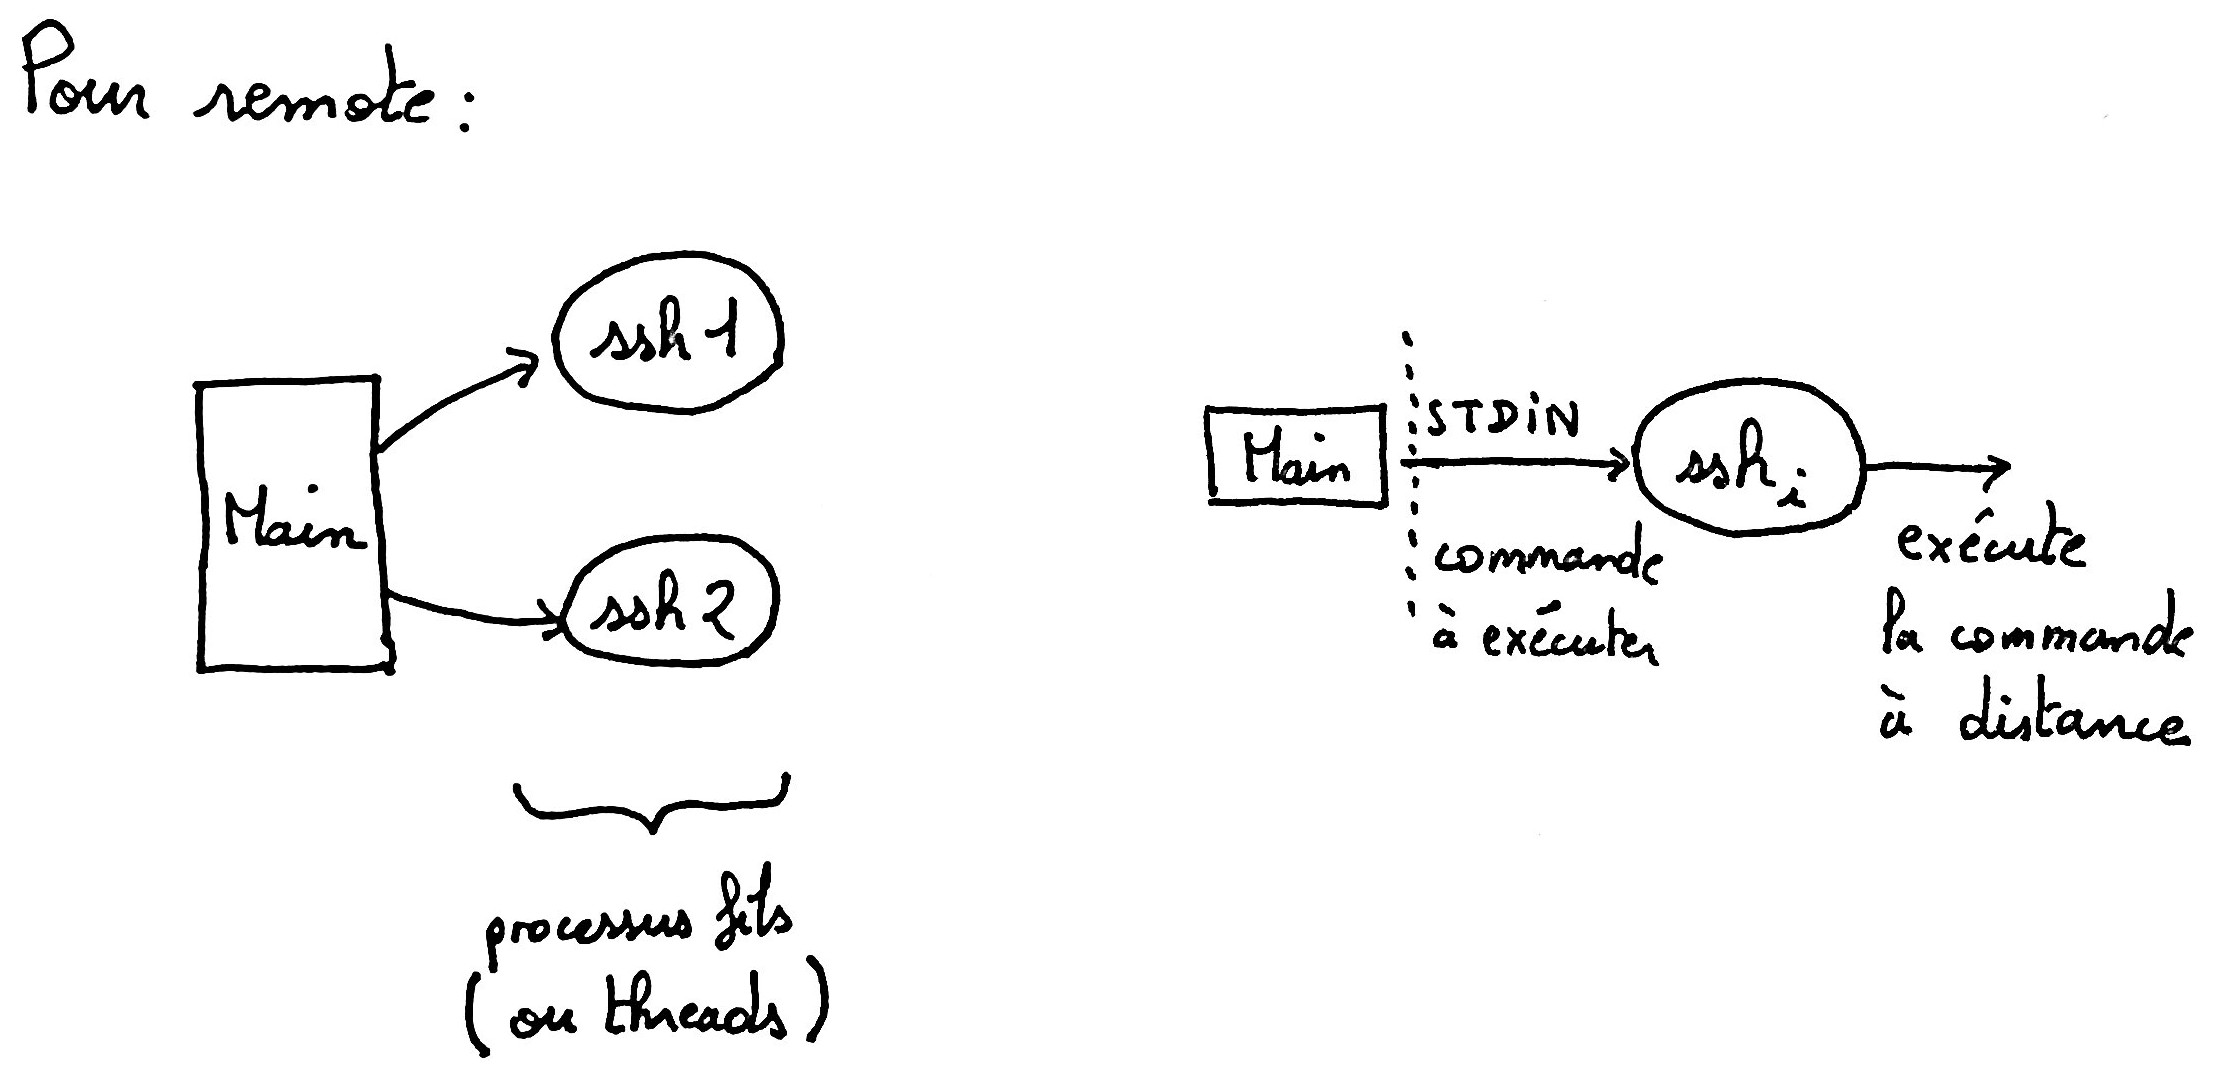 Pour remote :
Main
ssh 1
ssh 2
processus fils
(ou threads)
Main
STDiN
commande
à exécuter
ssh i
exécute
la commande
à distance